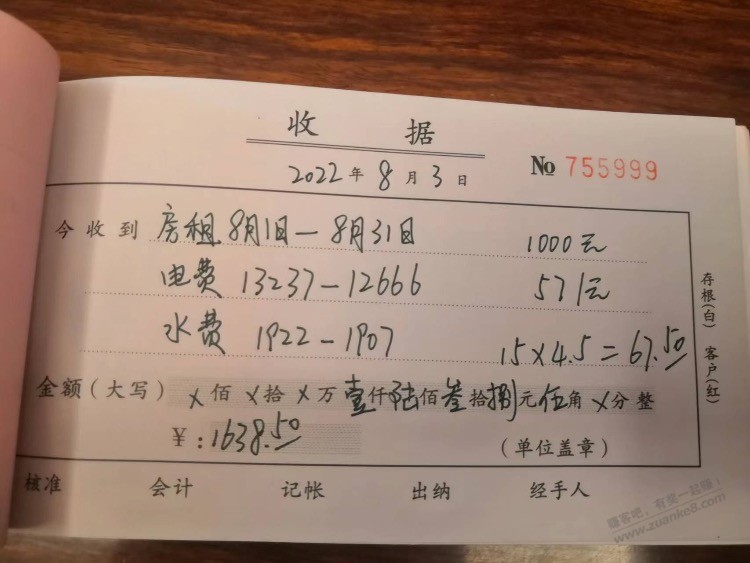 收 据
2022年8月3日 № 755999
今收到 房租 8月1日—8月31日 1000元
电费 13237—12666 571元
水费 1922—1907 15×4.5=67.50
金额(大写) ×佰×拾×万壹仟陆佰叁拾捌元伍角×分整
¥:1638.50 (单位盖章)
核准 会计 记帐 出纳 经手人
存根(白) 客户(红)
赚客吧,有奖一起赚!
www.zuanke8.com